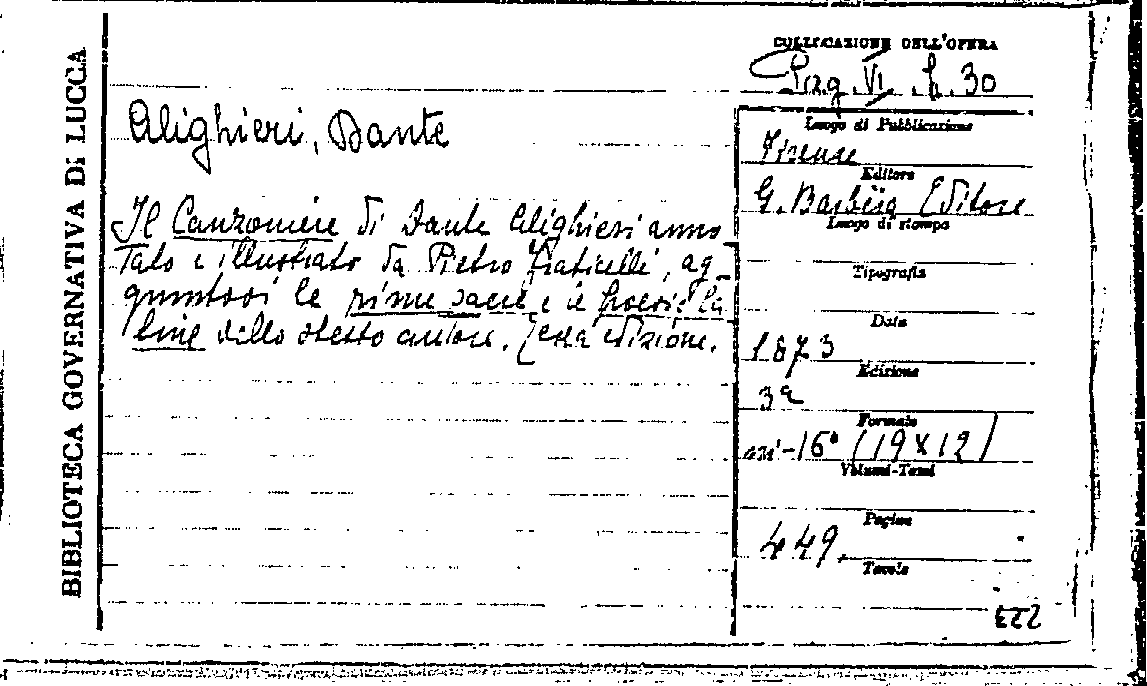 BIBLIOTECA GOVERNATIVA DI LUCCA
COLLOCAZIONE DELL'OPERA
VI. h. 30
Alighieri, Dante
Il Canzoniere di Dante Alighieri anno
tato e illustrato da Pietro Fraticelli, ag-
giuntovi le rime sacre e le poesie la
tine dello stesso autore. Terza edizione.
Luogo di Pubblicazione
Firenze
Editore
G. Barbèra Editore
Luogo di stampa
Tipografia
Data
1873
Edizione
3ª
Formato
-16° (19 X 12)
Volumi-Tomi
Pagine
449.
Tavole